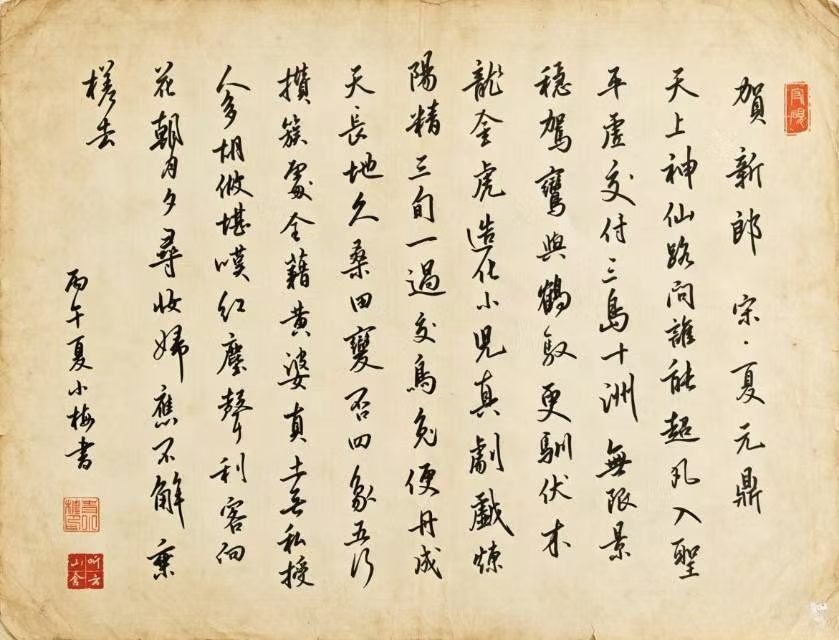 賀新郎 宋·夏元鼎
天上神仙路問誰能超凡入聖
平虛交付三島十洲無限景
穩駕鸞輿鶴馭更馴伏木
龍金虎造化小兒真劇戲煉
陽精三旬一過交烏兔便丹成
天長地久桑田變否四象五行
攢簇處全藉黃婆真土無私授
人多胡做堪嘆紅塵聲利客向
花朝月夕尋妝婦應不解乘
槎去
丙午夏小梅书
听云
山舍